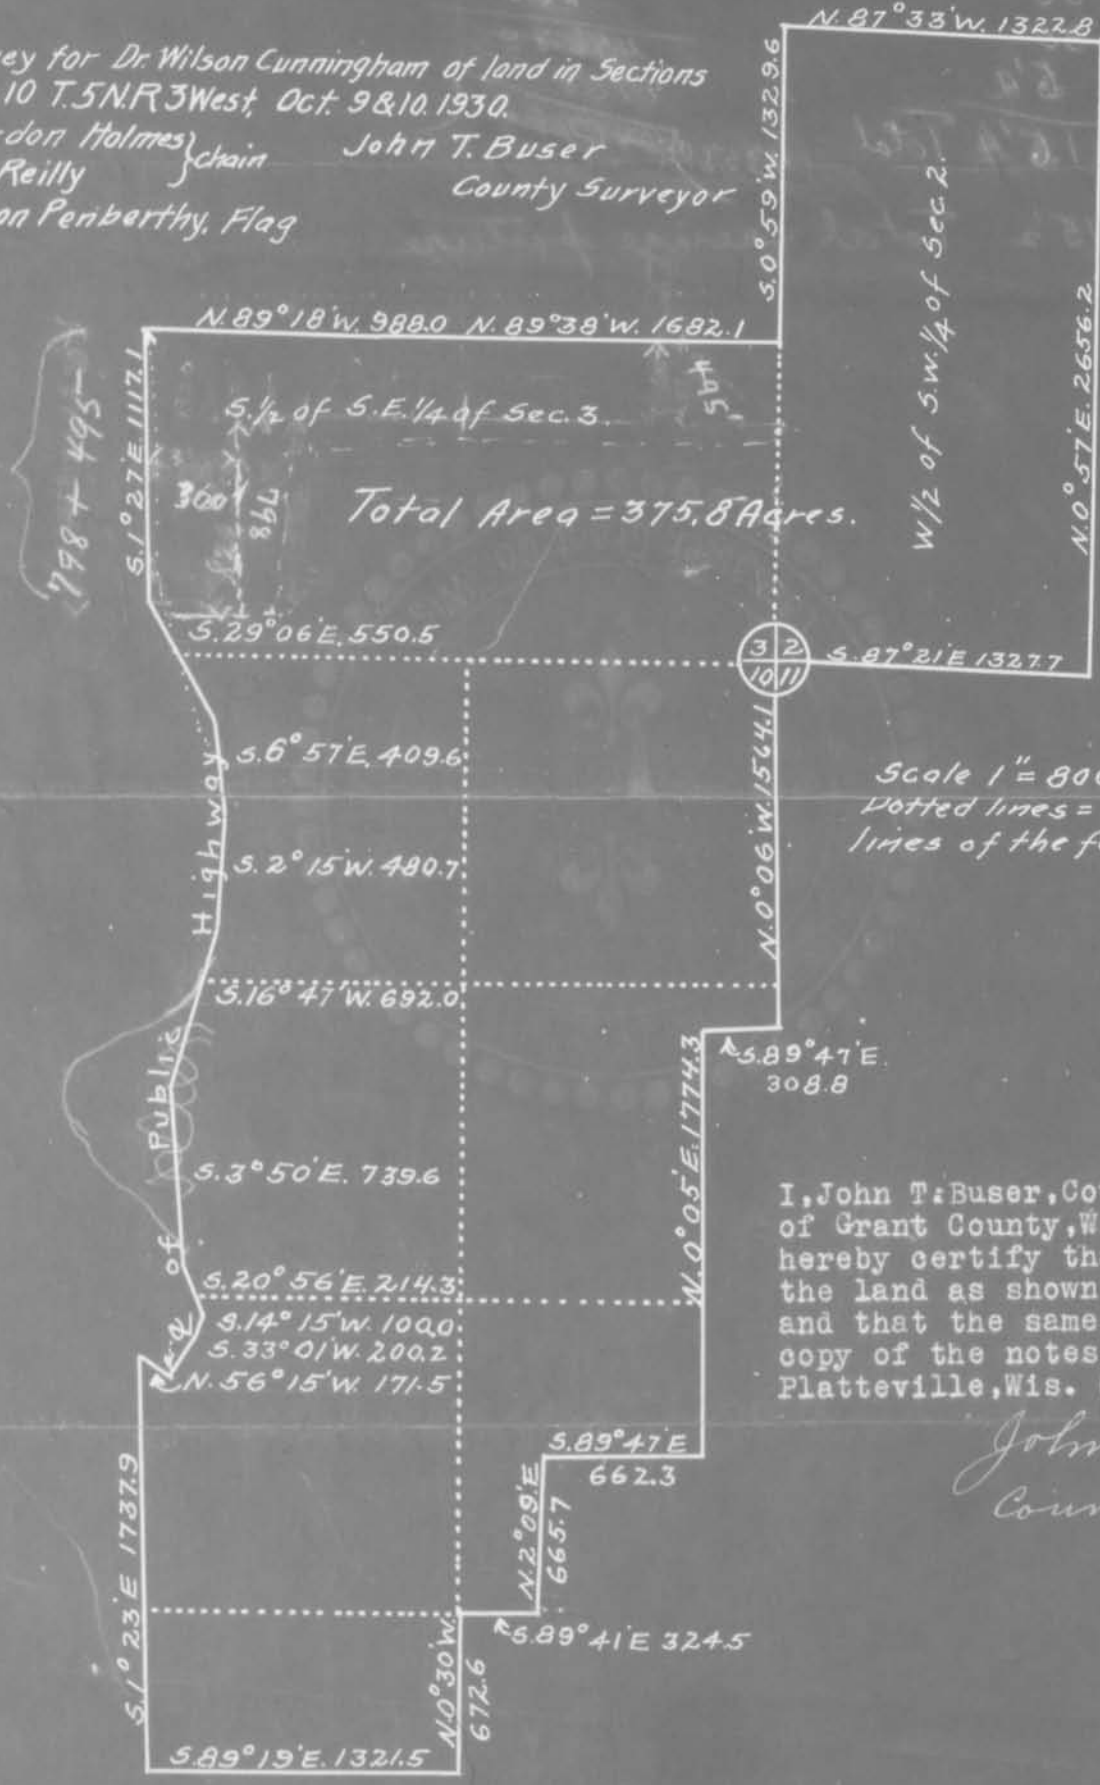 ey for Dr. Wilson Cunningham of land in Sections
10 T.5N.R3West, Oct. 9&10.1930.
don Holmes} chain
Reilly
on Penberthy, Flag
John T. Buser
County Surveyor
N. 87°33'W. 1322.8
S.0°59'W. 1329.6
W1/2 of S.W.1/4 of Sec.2.
N.0°57'E. 2656.2
N.89°18'W. 988.0 N.89°38'W. 1682.1
S.1°27'E 1117.1
798 + 495
S.1/2 of S.E.1/4 of Sec.3.
300
798
Total Area = 375.8 Acres.
S.29°06'E. 550.5
3 2
10 11
S.87°21'E 1327.7
S.6°57'E. 409.6
N.0°06'W. 1564.1
Scale 1"= 80
Dotted lines =
lines of the f
S.2°15'W. 480.7
S.16°47'W. 692.0
¢ of Public Highway
S.89°47'E.
308.8
N.0°05'E. 1774.3
S.3°50'E. 739.6
S.20°56'E. 214.3
S.14°15'W. 100.0
S.33°01'W. 200.2
N.56°15'W. 171.5
I,John T.Buser,Co
of Grant County,W
hereby certify th
the land as shown
and that the same
copy of the notes
Platteville,Wis.
John
Coun
S.89°47'E
662.3
N.2°09'E
665.7
S.1°23'E 1737.9
S.89°41'E 324.5
N.0°30'W.
672.6
S.89°19'E. 1321.5